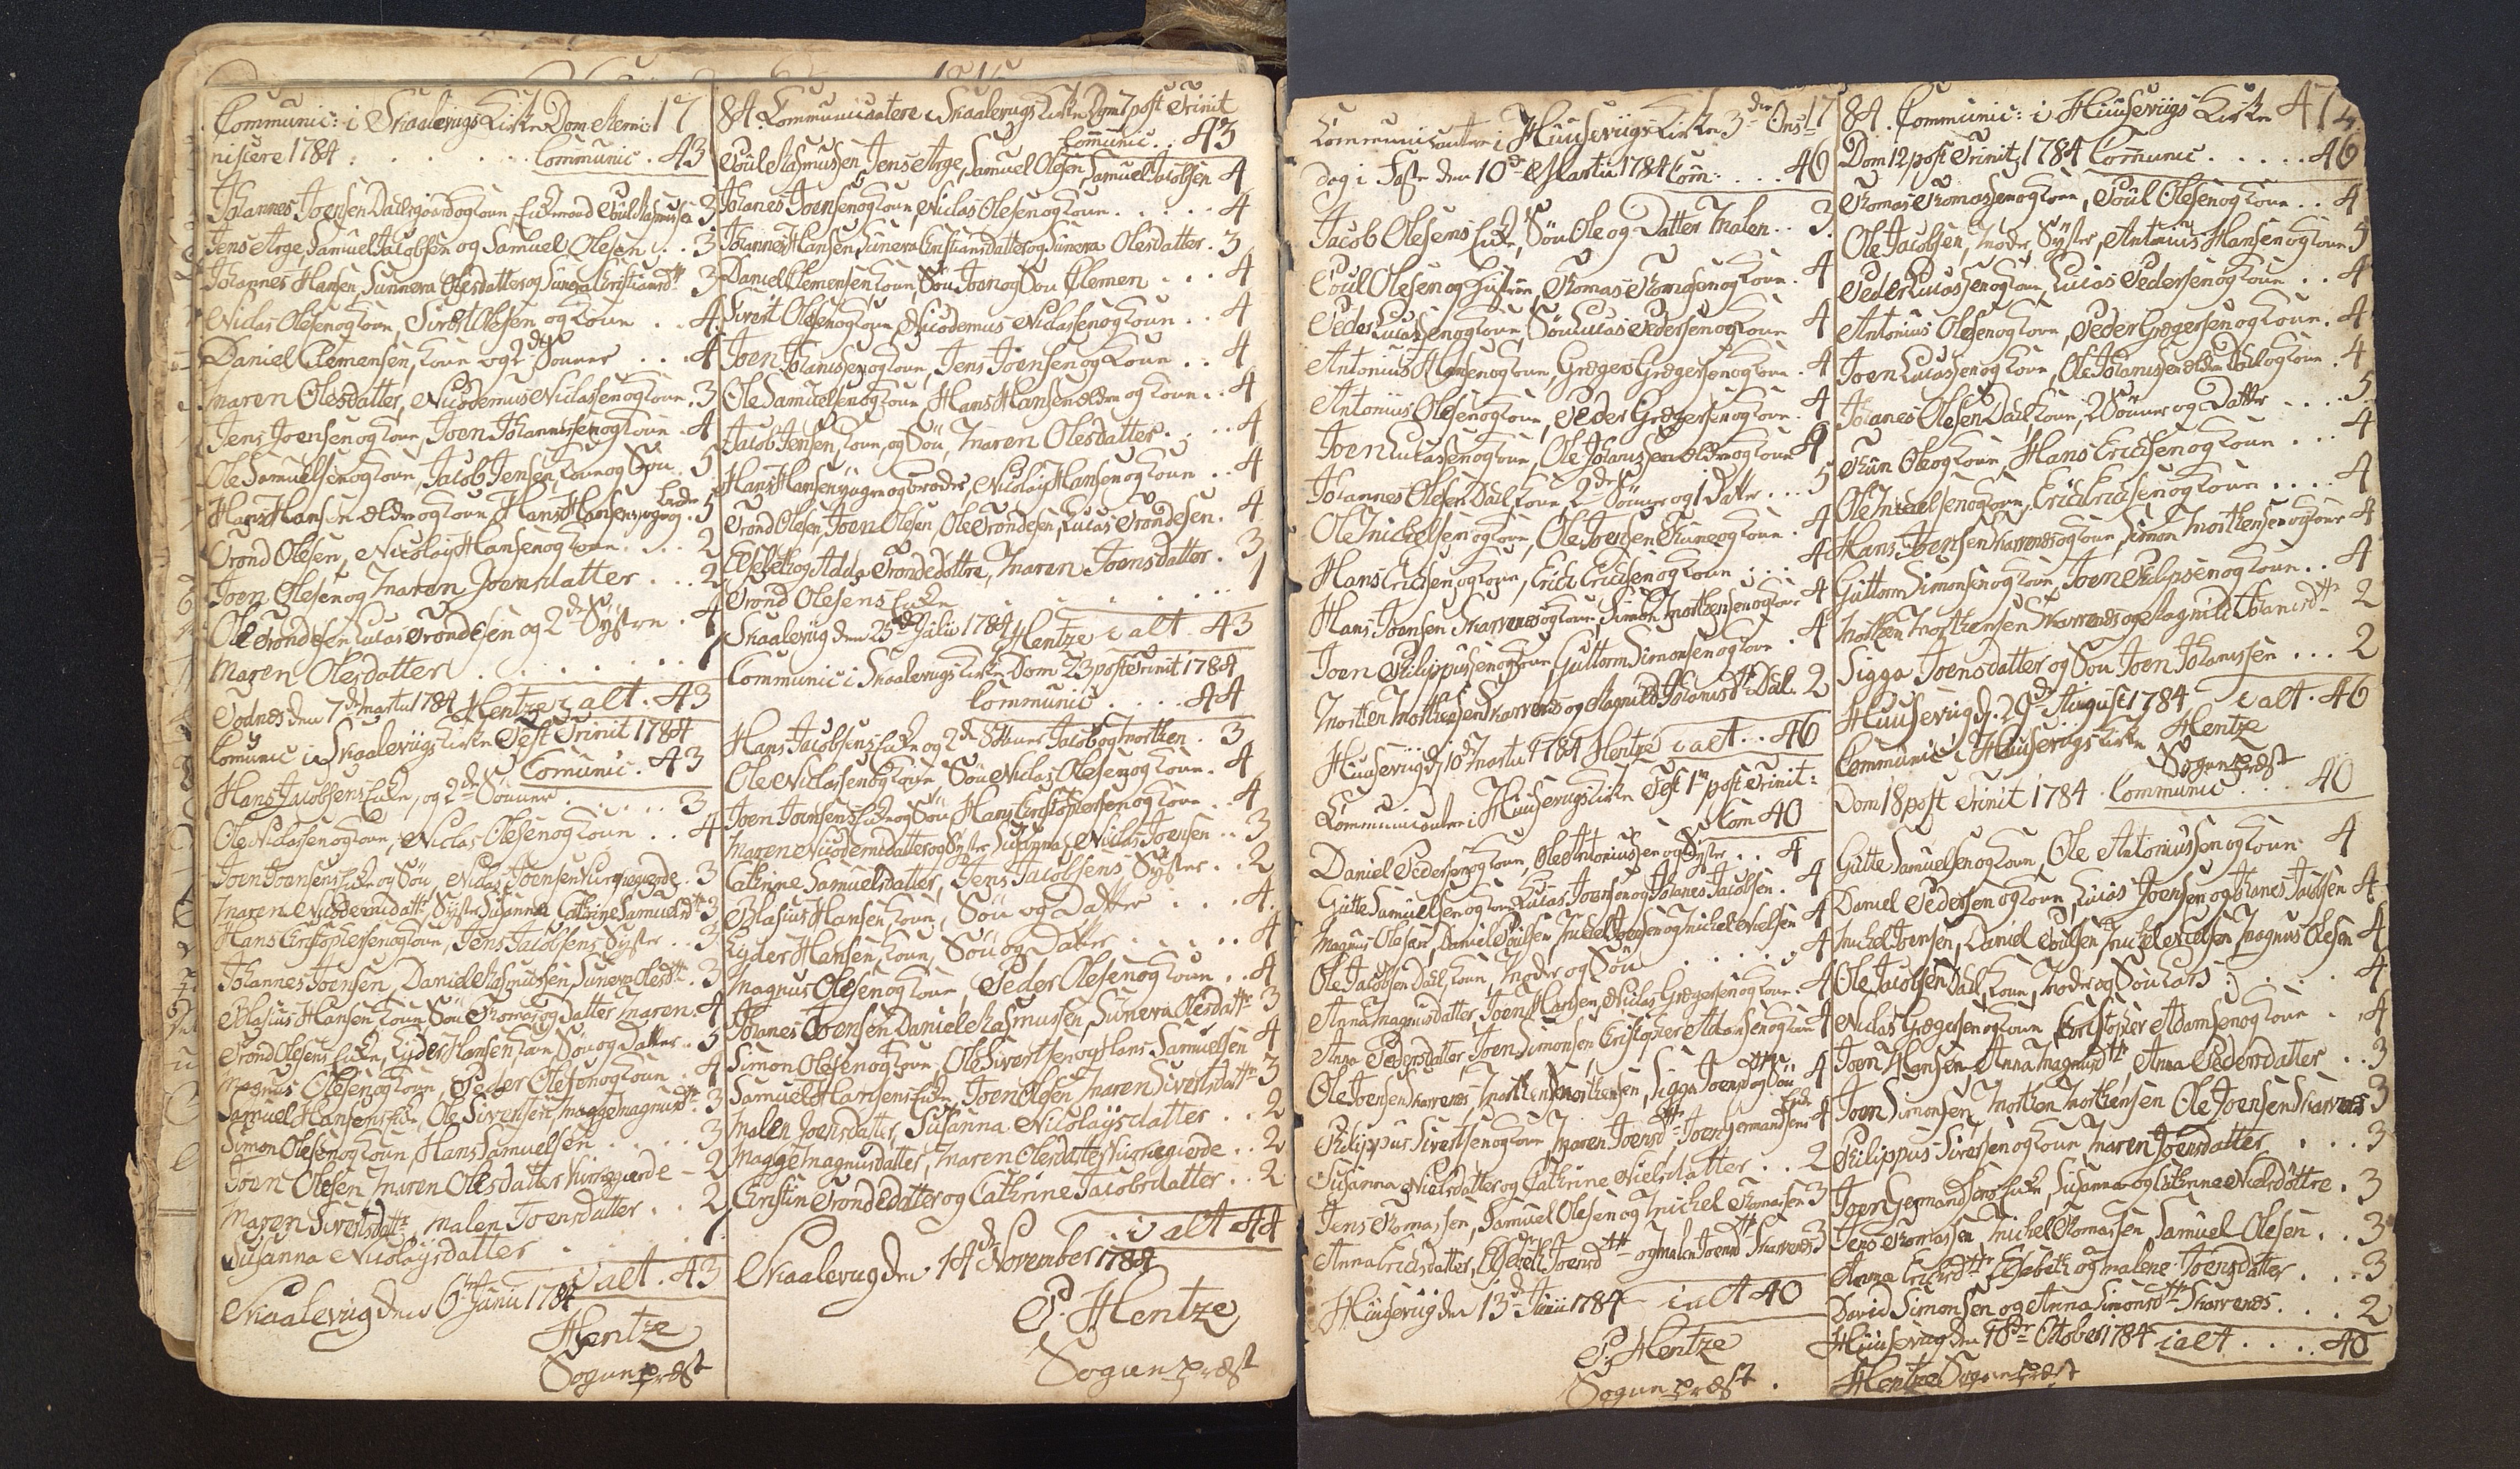 Communic: i Skaalevigs Kirke Dom. Remi 17
niscere 1784 . . . . . Communic . 43
Johannes Joensen Dalsgaard og Kone, Enkemand Poul Rasmussen 3
Jens Arge, Samuel Jacobsen og Samuel Olesen . . 3
Johannes Hansen, Sunneva Olesdatter og Suneva Christiansdttr 3
Niclas Olesen og Kone, Sivert Olesen og Kone . . 4
Daniel Clemensen, Kone og 2de Sønner . . . 4
Maren Olesdatter, Nicodemus Niclassen og Kone . 3
Jens Joensen og Kone, Joen Johannesen og Kone . 4
Ole Samuelsen og Kone, Jacob Jensen, Kone og Søn . 5
Hans Hansen ældre og Kone, Hans Hansen yngre og Broder . 5
Trond Olesen, Nicolaj Hansen og Kone . . . 2
Joen Olesen og Maren Joensdatter . . . 2
Ole Trondesen Lucas Trondesen og 2de Systre . 4
Maren Olesdatter . . . . . . . 1
Todnes den 7de Martii 1784 Hentze i alt . 43
Comunic i Skaalevigs Kirke Fest Trinit 1784
Comunic . 43
Hans Jacobsens Enke, og 2de Sønner . . . . . 3
Ole Niclassen og Kone, Niclas Olesen og Kone . . 4
Joen Joensens Enke og Søn, Niclas Joensen Nurregierde . 3
Maren Nicodemidattr Syster Susanna Cathrine Samuelsdttr 3
Hans Christophersen og Kone, Jens Jacobsens Syster . . 3
Johannes Joensen, Daniel Rasmussen, Suneva Olesdttr . 3
Blasius Hansen, Kone Søn Thomas og Datter Maren . 4
Trond Olesens Enke, Zyder Hansen Kone Søn og Datter . . 5
Magnus Olesen og Kone, Peder Olesen og Kone . 4
Samuel Hansens Enke, Ole Sivertsen, Magge Magnusdtr . 3
Simon Olesen og Kone, Hans Samuelsen . . . . 3
Joen Olesen Maren Olesdatter Nurregierde - 2
Maren Sivertsdattr, Malen Joensdatter . . 2
Susanna Nicolaysdatter . . . . . . 1
Skaalevig den 6te Junii 1784 i alt . 43
Hentze
Sogne præst
84. Communicantere i Skaalevigs Kirke Dom 7 post Trinit
Communic . . 43
Poul Rasmussen Jens Arge, Samuel Olesen, Samuel Jacobsen 4
Johanes Joensen og Kone, Niclas Olesen og Kone . . . . 4
Johannes Hansen, Suneva Christiansdatter og Suneva Olesdatter . 3
Daniel Clemensen Kone, Søn Joen og Søn Clemen . . . 4
Sivert Olesen og Kone, Nicodemus Niclassen og Kone . . 4
Joen Johannesen og Kone, Jens Joensen og Kone . . 4
Ole Samuelsen og Kone, Hans Hansen ældre og Kone . . 4
Jacob Jensen, Kone og Søn, Maren Olesdatter . . . . 4
Hans Hansen yngre og Broder, Nicolaj Hansen og Kone . . 4
Trond Olesen, Joen Olesen, Ole Trondesen, Lucas Trondesen . 4
Elsebeth og Adda Trondedøttre, Maren Joensdatter . 3
Trond Olesens Enke . . . . . . . 1
Skaalevig den 25de Julii 1784 Hentze i alt . 43
Communic i Skaalevigs Kirke Dom 23 post Trinit 1784
Communic . . . . 44
Hans Jacobsens Enke og 2de Sønner Jacob og Morthen . 3
Ole Niclassen og Kone Søn Niclas Olesen og Kone . 4
Joen Joensens Enke og Søn, Hans Christophersen og Kone . . 4
Maren Nicodemidatter og Syster Susanna, Niclas Joensen . . 3
Cathrine Samuelsdatter, Jens Jacobsens Syster . . 2
Blasius Hansen, Kone, Søn og Datter . . . 4
Zyder Hansen, Kone, Søn og Datter . . . . 4
Magnus Olesen og Kone, Peder Olesen og Kone . . 4
Johanes Joensen Daniel Rasmussen, Suneva Olesdattr 3
Simon Olesen og Kone, Ole Sivertsen og Hans Samuelsen 4
Samuel Hansens Enke, Joen Olesen, Maren Sivertsdattr 3
Malen Joensdatter, Susanna Nicolaysdatter . . 2
Magge Magnusdatter, Maren Olesdatter Nurregierde . . 2
Christin Trondedatter og Cathrine Jacobsdatter . . 2
i alt 44
Skaalevig den 14de November 1784
P. Hentze
Sogne præst
Communicantere i Huusevigs Kirke 3de Ons- 17
dag i Faste den 10de Martii 1784 Com: . . . 46
Jacob Olesens Enke, Søn Ole og Datter Malen . . 3
Poul Olesen og Hustrue, Thomas Thomasen og Kone . 4
Peder Lucassen og Kone, Søn Lucas Pedersen og Kone 4
Antonius Hansen og Kone, Græger Grægersen og Kone . 4
Antonius Olesen og Kone, Peder Grægersen og Kone . 4
Joen Lucassen og Kone, Ole Johanssen ældre og Kone 4
Johannes Olesen Dahl, Kone, 2de Sønner og 1 Datter . . . 5
Ole Michelsen og Kone, Ole Joensen Thune og Kone . 4
Hans Erichsen og Kone, Erich Erichsen og Kone . . . 4
Hans Joensen Skarvenes og Kone, Simon Morthensen og Kone 4
Joen Philippussen og Kone, Guttorm Simonsen og Kone . 4
Morthen Morthensen Skarvenes og Magnild Johanesdttr Dal . 2
Huusevig d. 10de Martii 1784 Hentze i alt . . 46
Communicantere i Huusevigs Kirke Fest 1n post Trinit:
Com 40
Daniel Pedersen og Kone, Ole Antoniussen og Syster . . 4
Gutte Samuelsen og Kone Lucas Joensen og Johanes Jacobsen . 4
Magnus Olesen, Daniel Poulsen Michel Joensen og Michel Nielsen 4
Ole Jacobsen Dahl, Kone, Moder og Søn . . . . . 4
Anna Magnusdatter, Joen Hansen, Niclas Grægersen og Kone . 4
Anna Pedersdatter, Joen Simonsen, Christopher Adamsen og Kone 4
Ole Joensen Skarvenes, Morthen Morthensen, Sigga Joensdttr og Søn 4
Philippus Sivertsen og Kone, Maren Joensdttr Joen Germandsens Enke 4
Susanna Nielsdatter og Cathrine Nielsdatter . . 2
Jens Thomassen, Samuel Olesen og Michel Thomassen 3
Anna Erichsdatter, Elsebeth Joensdttr og Malen Joensdttr Skarvenes 3
Huusevig den 13de Junii 1784 i alt 40
P. Hentze
Sogne præst .
84. Communic: i Huusevigs Kirke 474
Dom 12 post Trinit, 1784 Communic . . . . . 46
Thomas Thomassen og Kone, Poul Olesen og Kone . . 4
Ole Jacobsen, Moder, Syster, Antonius Hansen og Kone 5
Peder Lucassen og Kone, Lucas Pedersen og Kone . . 4
Antonius Olesen og Kone, Peder Grægersen og Kone . 4
Joen Lucassen og Kone, Ole Johanssen ældre Dahl og Kone . 4
Johanes Olesen Dahl, Kone, 2 Sønner og Datter . . . . 5
Thun Ole og Kone, Hans Erichsen og Kone . . . 4
Ole Michelsen og Kone, Erich Erichsen og Kone . . . . 4
Hans Joensen Skarvenes og Kone, Simon Morthensen og Kone 4
Guttorm Simonsen og Kone, Joen Philipsen og Kone . . 4
Morthen Morthensen Skarvenes og Magnild Johanesdttr 2
Sigga Joensdatter og Søn Joen Johanssen . . . 2
Huusevig d. 29de August 1784 i alt . 46
Hentze
Communic i Huusevigs Kirke
Sogne præst
Dom 18 post Trinit 1784 . Communic . . . 40
Gutte Samuelsen og Kone, Ole Antoniussen og Kone 4
Daniel Pedersen og Kone, Lucas Joensen og Johanes Jacobsen 4
Michel Joensen, Daniel Poulsen Michel Nielsen Magnus Olesen 4
Ole Jacobsen Dahl, Kone, Moder og Søn Lars . . . . 4
Niclas Grægersen og Kone Christopher Adamsen og Kone . . 4
Joen Hansen Anna Magnusdttr, Anna Pedersdatter . . 3
Joen Simonsen Morthen Morthensen Ole Joensen Skarvenes 3
Philippus Sivertsen og Kone Maren Joensdatter . . . 3
Joen Germandsens Enke, Susanna og Cathrine Nielsdøttre . 3
Jens Thomassen, Michel Thomassen, Samuel Olesen . . 3
Anna Erichsdttr Elsebeth og Malene Joensdatter . . . 3
David Simonsen og Anna Simonsdttr Skarvenes . . . 2
Huusevig den 10de October 1784 i alt . . . . 40
Hentze Sogne præst